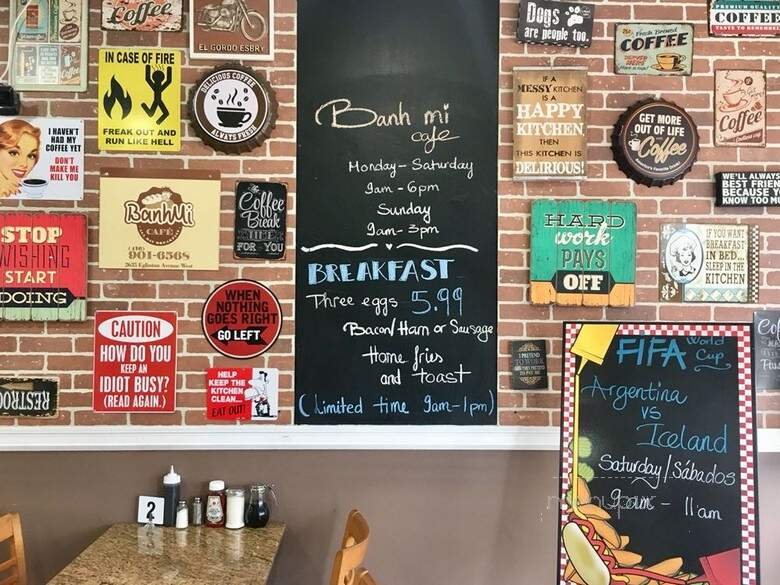 Coffee
Coffee
EL GORDO ESBRY
IN CASE OF FIRE
FREAK OUT AND
RUN LIKE HELL
DELICIOUS COFFEE
ALWAYS FRESH
I HAVEN'T
HAD MY
COFFEE YET
DON'T
MAKE ME
KILL YOU
BanhMi
CAFÉ
901-6568
2635 Eglinton Avenue West
Coffee
Break
TIME
FOR YOU
STOP
WISHING
START
DOING
WHEN
NOTHING
GOES RIGHT
GO LEFT
CAUTION
HOW DO YOU
KEEP AN
IDIOT BUSY?
(READ AGAIN.)
HELP
KEEP THE
KITCHEN
CLEAN...
EAT OUT!
RESTROOM
2
Banh mi
cafe
Monday - Saturday
9am - 6pm
Sunday
9am - 3pm
BREAKFAST
Three eggs 5.99
Bacon/Ham or Sausage
Home fries
and toast
(Limited time 9am-1pm)
Dogs
are people too.
Fresh Brewed
COFFEE
PREMIUM QUALITY
COFFEE
IF A
MESSY KITCHEN
IS A
HAPPY
KITCHEN,
THEN
THIS KITCHEN IS
DELIRIOUS!
GET MORE
OUT OF LIFE
Coffee
Coffee
WE'LL ALWAYS
BEST FRIEN
BECAUSE Y
KNOW TOO MU
HARD
work
PAYS
OFF
IF YOU WANT
BREAKFAST
IN BED...
SLEEP IN THE
KITCHEN
I PRETEND
TO WORK
FIFA World
Cup
Argentina
vs
Iceland
Saturday/Sábados
9am - 11am
menupix